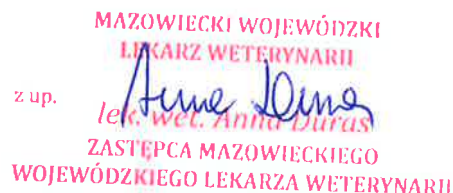 MAZOWIECKI WOJEWÓDZKI
LEKARZ WETERYNARII
z up.
lek. wet. Anna Duras
ZASTĘPCA MAZOWIECKIEGO
WOJEWÓDZKIEGO LEKARZA WETERYNARII